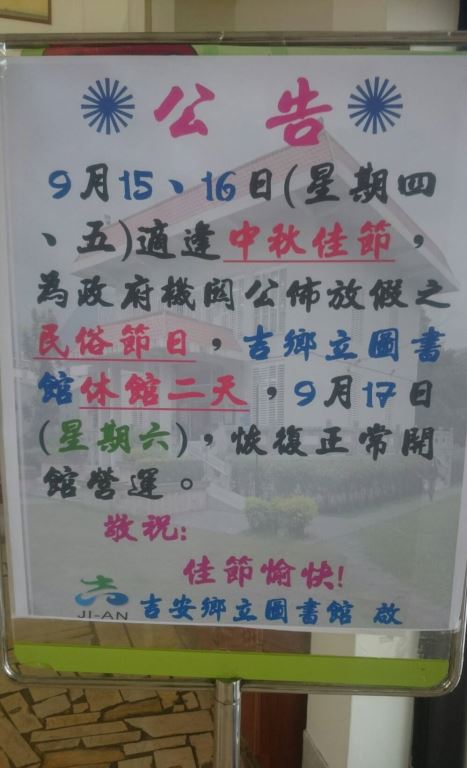 公 告
9月15、16日(星期四
、五)適逢中秋佳節，
為政府機関公佈放假之
民俗節日，吉鄉立圖書
館休館二天，9月17日
(星期六)，恢復正常開
館營運。
敬祝:
佳節愉快!
JI-AN 吉安鄉立圖書館 啟